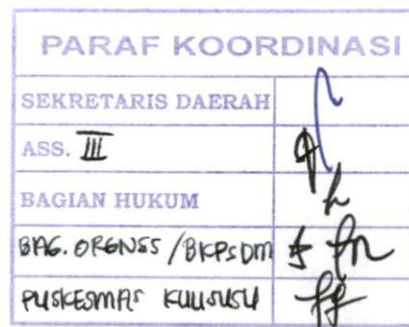 PARAF KOORDINASI
SEKRETARIS DAERAH
ASS. III
BAGIAN HUKUM
BAG. ORGNSS / BKPSDM
PUSKESMAS KULISUSU